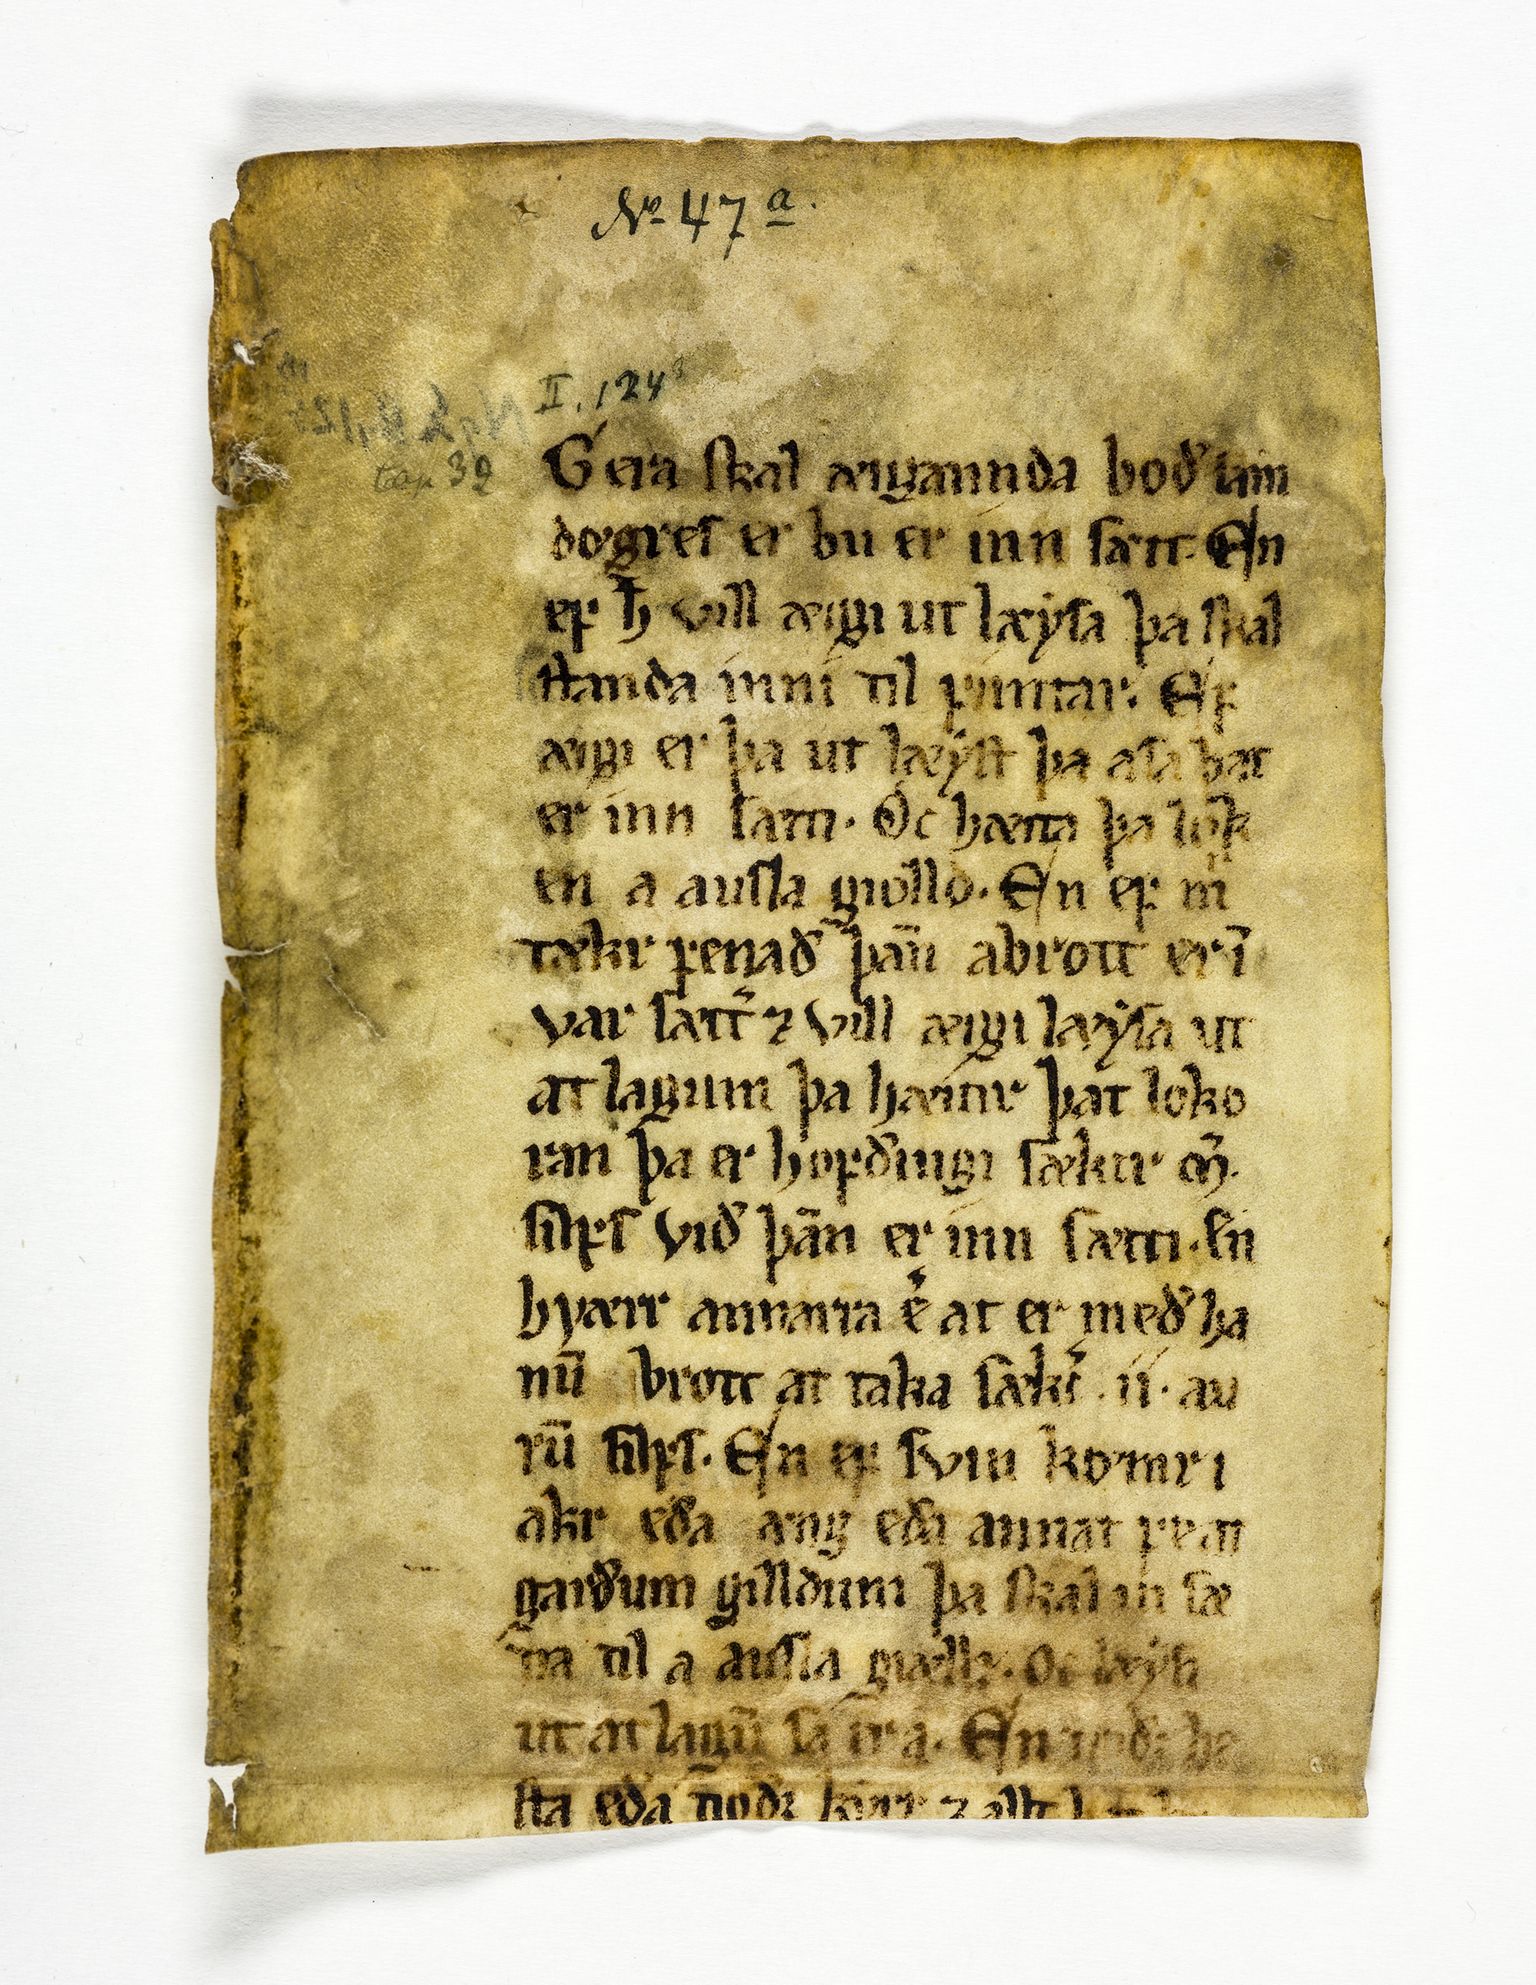 No 47 a.
II. 124³
cap 39
Gera skal æigannda boð sam
dogres er bu er inn sætt. En
ef h̄ vill æigi ut læysa þa skal
standa inni til fimtar. Ef
æigi er þa ut læyst þa asa þat
er inn sætti. Oc hætta þa
en a ausla giolld. En ef m̄
tækr fenað þān abrott er ī
var sættr ⁊ vill æigi læysa ut
at lagum þa hæitir þat loko
ran þa er hofðingi sækir m̄.
silfrs við þān er inn sætti. En
hværr annarra er at er með ha
nū brott at taka sækr .ii. au
rū silfrs. En ef svin komr i
akr eða æng eða annat feat
garðum gilldum þa skal in sæ
tia til a ausla giællz. Oc læysi
ut at lagū sa er a. En
sta eða nodz ⁊ allt